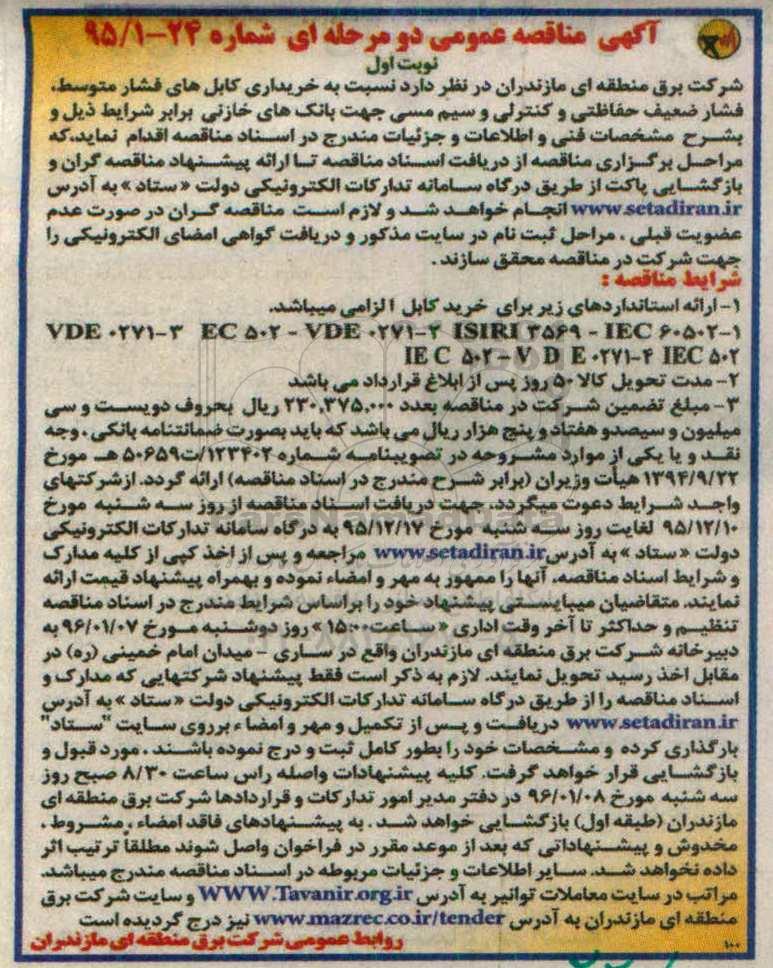 آگهی مناقصه عمومی دو مرحله ای شماره ۲۴-۹۵/۱
نوبت اول
شرکت برق منطقه ای مازندران در نظر دارد نسبت به خریداری کابل های فشار متوسط،
فشار ضعیف حفاظتی و کنترلی و سیم مسی جهت بانک های خازنی برابر شرایط ذیل و
بشرح مشخصات فنی و اطلاعات و جزئیات مندرج در اسناد مناقصه اقدام نماید،که
مراحل برگزاری مناقصه از دریافت اسناد مناقصه تا ارائه پیشنهاد مناقصه گران و
بازگشایی پاکت از طریق درگاه سامانه تدارکات الکترونیکی دولت « ستاد » به آدرس
www.setadiran.ir انجام خواهد شد و لازم است مناقصه گران در صورت عدم
عضویت قبلی ، مراحل ثبت نام در سایت مذکور و دریافت گواهی امضای الکترونیکی را
جهت شرکت در مناقصه محقق سازند .
شرایط مناقصه :
۱- ارائه استانداردهای زیر برای خرید کابل الزامی میباشد.
VDE ۰۲۷۱-۳ EC ۵۰۲ - VDE ۰۲۷۱-۴ ISIRI ۳۵۶۹ - IEC ۶۰۵۰۲-۱
IEC ۵۰۲ - V D E ۰۲۷۱-۴ IEC ۵۰۲
۲- مدت تحویل کالا ۵۰ روز پس از ابلاغ قرارداد می باشد
۳- مبلغ تضمین شرکت در مناقصه بعدد ۲۳۰,۳۷۵,۰۰۰ ریال بحروف دویست و سی
میلیون و سیصدو هفتاد و پنج هزار ریال می باشد که باید بصورت ضمانتنامه بانکی ، وجه
نقد و یا یکی از موارد مشروحه در تصویبنامه شماره ۱۲۳۴۰۲/ت۵۰۶۵۹ هـ مورخ
۱۳۹۴/۹/۲۲ هیأت وزیران (برابر شرح مندرج در اسناد مناقصه) ارائه گردد. ازشرکتهای
واجد شرایط دعوت میگردد، جهت دریافت اسناد مناقصه از روز سه شنبه مورخ
۹۵/۱۲/۱۰ لغایت روز سه شنبه مورخ ۹۵/۱۲/۱۷ به درگاه سامانه تدارکات الکترونیکی
دولت « ستاد » به آدرسwww.setadiran.ir مراجعه و پس از اخذ کپی از کلیه مدارک
و شرایط اسناد مناقصه، آنها را ممهور به مهر و امضاء نموده و بهمراه پیشنهاد قیمت ارائه
نمایند. متقاضیان میبایستی پیشنهاد خود را براساس شرایط مندرج در اسناد مناقصه
تنظیم و حداکثر تا آخر وقت اداری « ساعت۱۵:۰۰ » روز دوشنبه مورخ ۹۶/۰۱/۰۷ به
دبیرخانه شرکت برق منطقه ای مازندران واقع در ساری - میدان امام خمینی (ره) در
مقابل اخذ رسید تحویل نمایند. لازم به ذکر است فقط پیشنهاد شرکتهایی که مدارک و
اسناد مناقصه را از طریق درگاه سامانه تدارکات الکترونیکی دولت « ستاد » به آدرس
www.setadiran.ir دریافت و پس از تکمیل و مهر و امضاء برروی سایت "ستاد"
بارگذاری کرده و مشخصات خود را بطور کامل ثبت و درج نموده باشند ، مورد قبول و
بازگشایی قرار خواهد گرفت. کلیه پیشنهادات واصله راس ساعت ۸/۳۰ صبح روز
سه شنبه مورخ ۹۶/۰۱/۰۸ در دفتر مدیر امور تدارکات و قراردادها شرکت برق منطقه ای
مازندران (طبقه اول) بازگشایی خواهد شد . به پیشنهادهای فاقد امضاء ، مشروط ،
مخدوش و پیشنهاداتی که بعد از موعد مقرر در فراخوان واصل شوند مطلقاً ترتیب اثر
داده نخواهد شد. سایر اطلاعات و جزئیات مربوطه در اسناد مناقصه مندرج میباشد.
مراتب در سایت معاملات توانیر به آدرس WWW.Tavanir.org.ir و سایت شرکت برق
منطقه ای مازندران به آدرس www.mazrec.co.ir/tender نیز درج گردیده است
روابط عمومی شرکت برق منطقه ای مازندران
۱۰۰